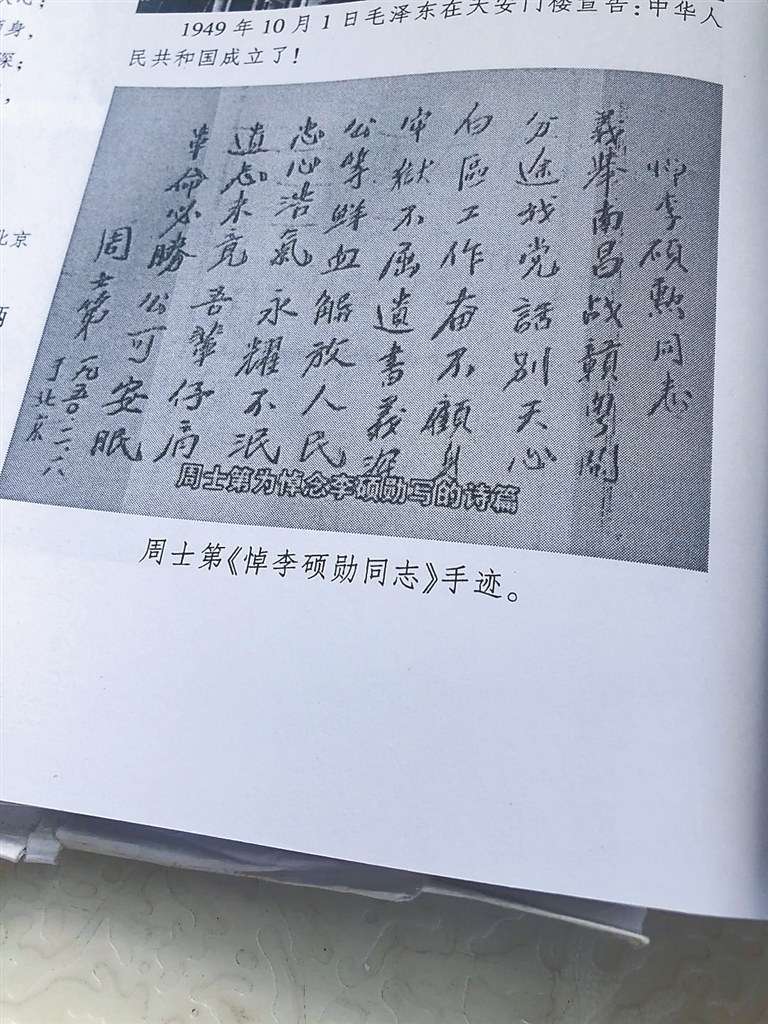 身，
深；
北京
1949 年 10 月 1 日毛泽东在天安门楼宣告：中华人
民共和国成立了！
悼李碩勲同志
義舉南昌战贛粤閩
分途我党話別天心
白區工作奋不顧身
牢獄不屈遺書義深
公等鮮血解放人民
忠心浩氣永耀不泯
遺志未竟吾輩仔肩
革命必勝公可安眠
周士第
一九五〇
于北京
周士第为悼念李硕勋写的诗篇
周士第《悼李硕勋同志》手迹。